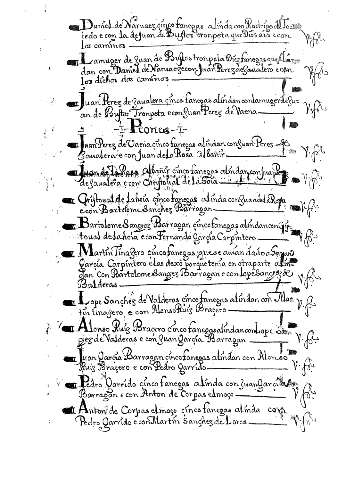 Daniel de Narvaez cinco fanegas alinda con Rodrigo de To
ledo e con la de Juan de Bustos trompeta que Dios aia e con
los caminos
La muger de Juan de Bustos trompeta Diez fanegas que alin
dan con Daniel de Narvaez e con Juan Perez de Zavalera e con
los dichos dos caminos
Juan Perez de Zavalera cinco fanegas alindan con la muger de Ju
an de Bustos Trompeta e con Juan Perez de Vaena
Peones
Juan Perez de Vaena cinco fanegas alindan con Juan Perez
Zavalera e con Juan de la Rosa albañir
Juan de la Rosa Albañir cinco fanegas alindan con Juan P
de Zavalera e con Cristobal de Laheia
Cristoual de Laheia cinco fanegas alinda con Juan de la Rosa
e con Bartolome Sanchez Barragan
Bartolome Sanchez Barragan cinco fanegas alindan con Cris
toual de Laheia e con Fernando Garcia Carpintero
Martin Tinajero cinco fanegas
Garcia Carpintero e las dexó por tenerla en otra parte alin
dan con Bartolome Sanchez Barragan e con Lope Sanchez de
Valderas
Lope Sanchez de Valderas cinco fanegas alindan con Mar
tin Tinajero e con Alonso Ruiz Bracero
Alonso Ruiz Bracero cinco fanegas alindan con Lope San
chez de Valderas e con Juan Garcia Barragan
Juan Garcia Barragan cinco fanegas alindan con Alonso
Ruiz Bracero e con Pedro Garrido
Pedro Garrido cinco fanegas alinda con Juan Garcia
Barragan e con Anton de Corpas el moço
Anton de Corpas el moço cinco fanegas alinda con
Pedro Garrido e con Martin Sanchez de Lorca